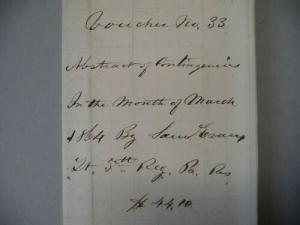 Voucher No. 33
Abstract of Contingencies
In the Month of March
1864 By Sam'l Evans
Qt. 5th Reg. Pa. Res
$44.10